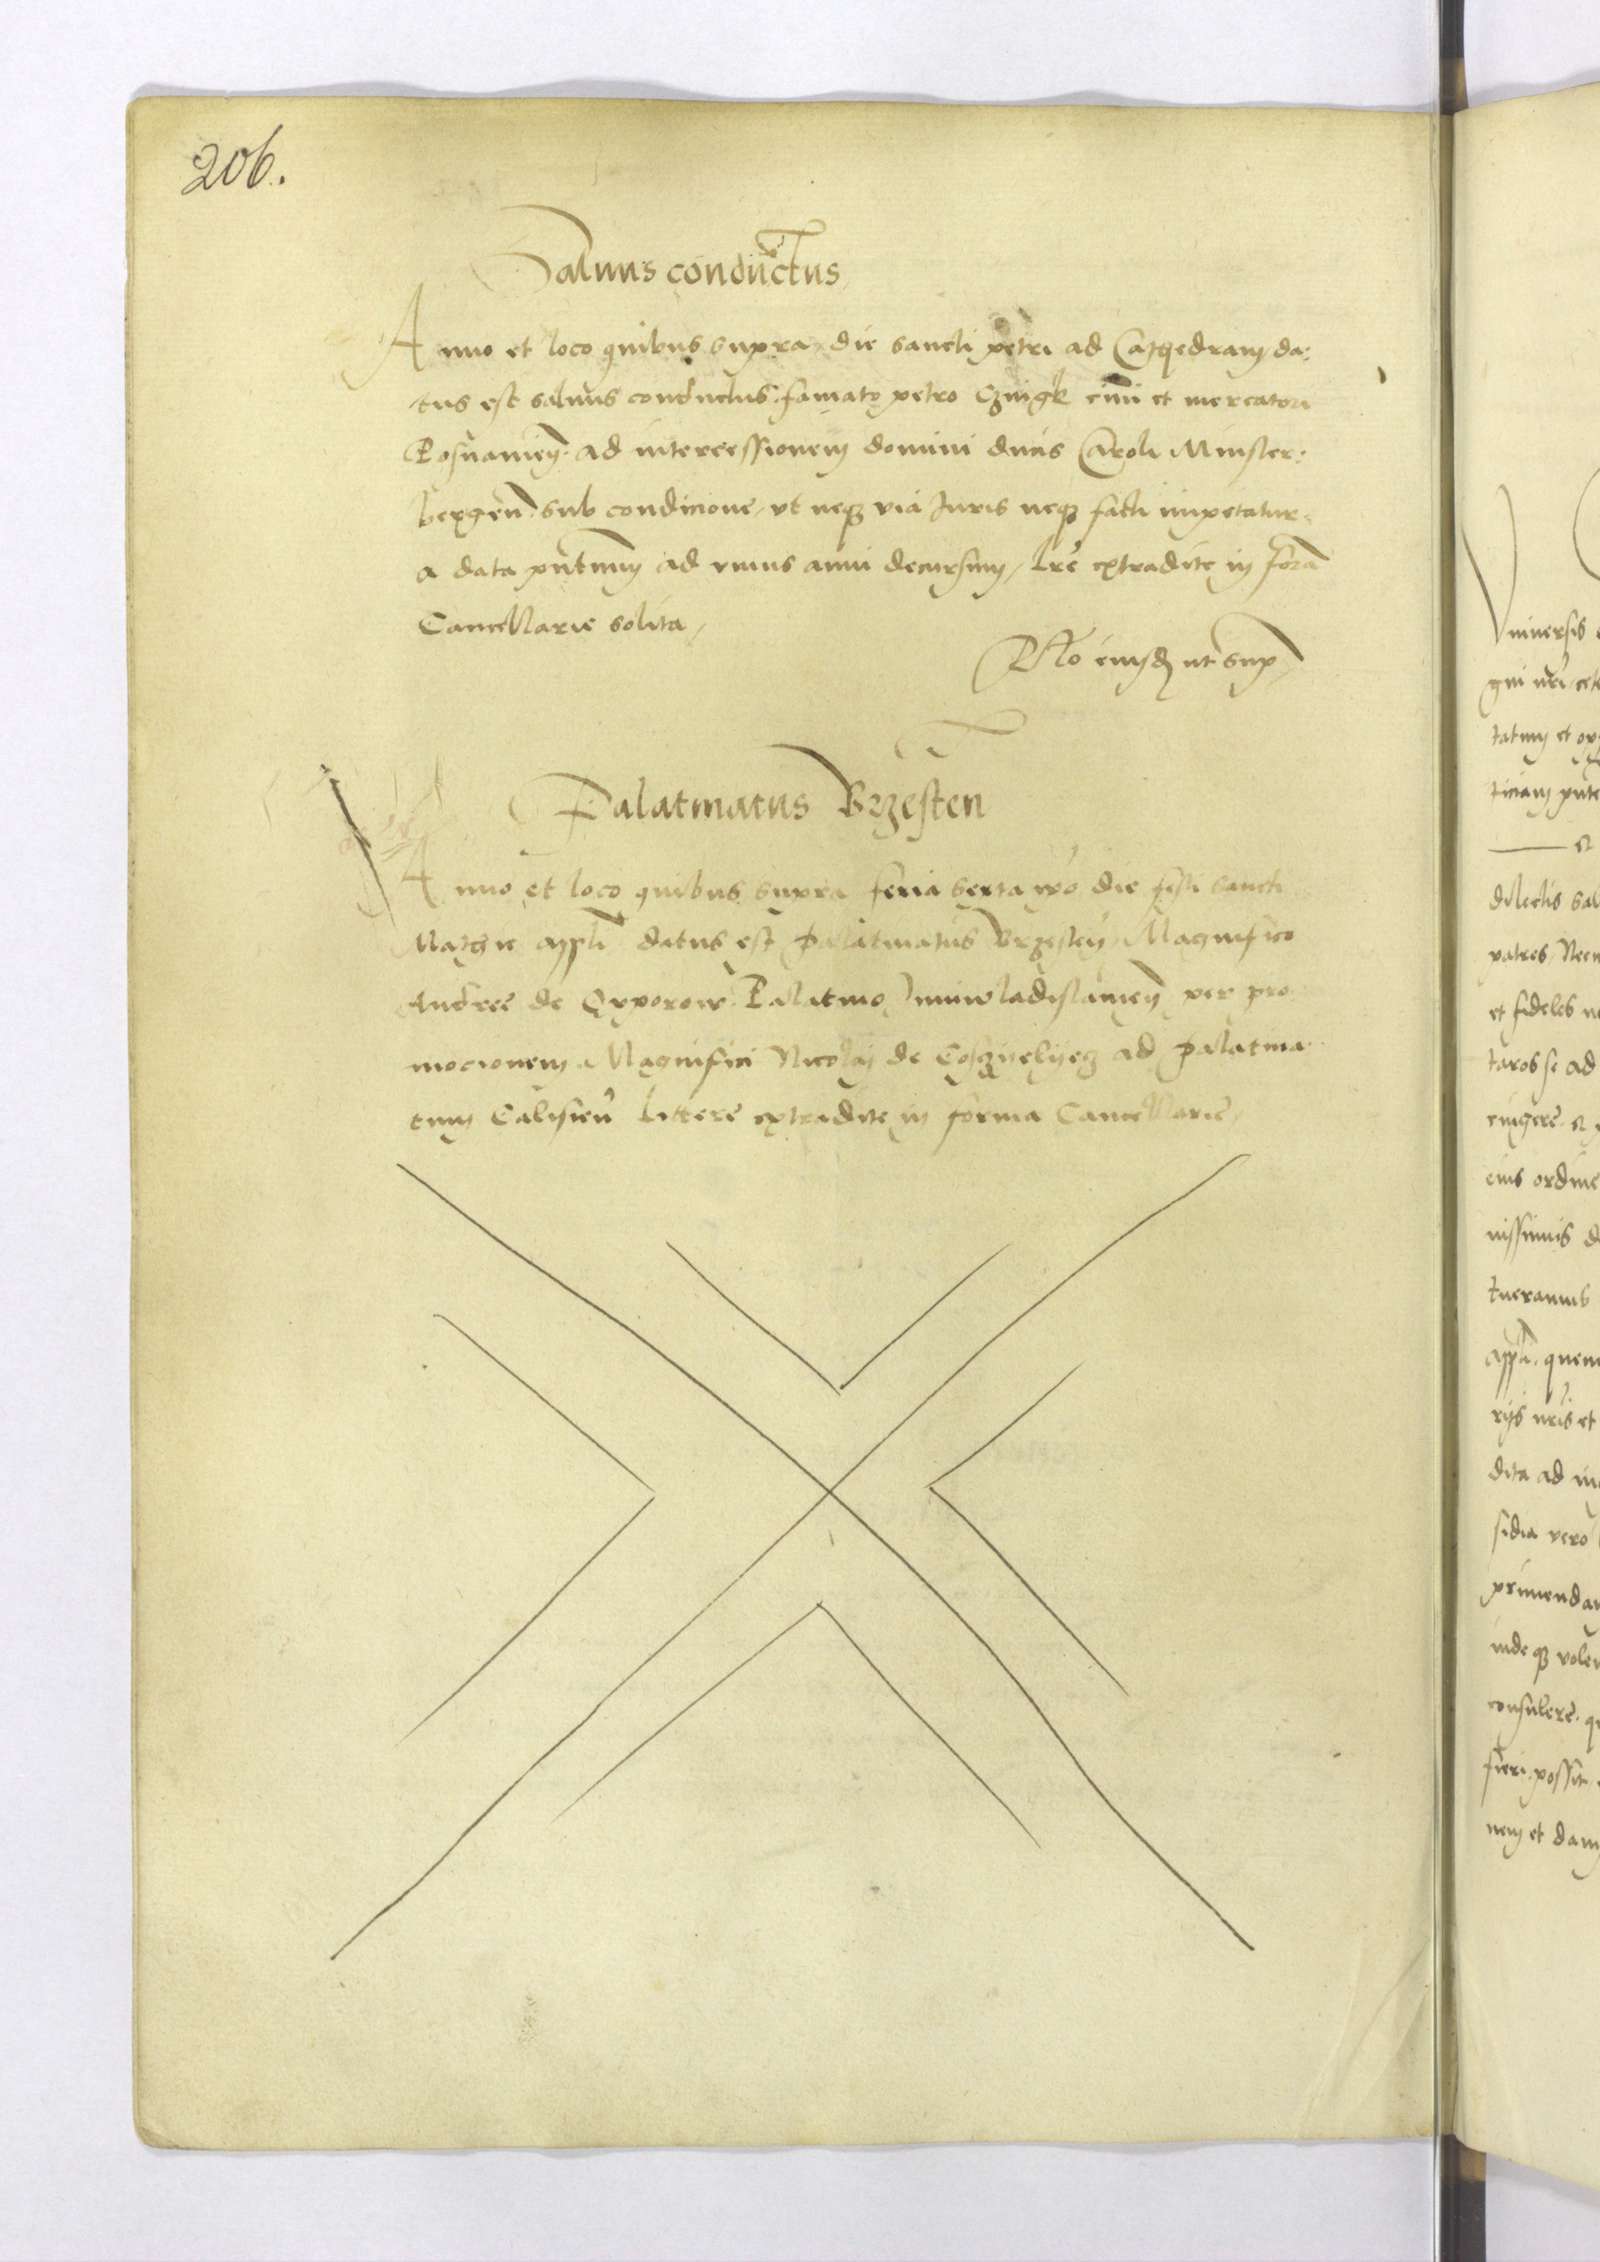 206.
Saluus conductus
Anno et loco quibus supra die sancti petri ad Cathedram da:
tus est saluus conductus famato petro Czvigk civi et mercatori
Posnanien. ad intercessionem domini ducis Caroli Minster:
bergen sub condicione, vt neq via Juris neq facti impetatur
a data pntium ad vnius anni decursum, lre extradite in forma
Cancellarie solita,
Rlo eiusdem ut supra
Palatinatus Brzesten
Anno et loco quibus supra feria sexta ipo die festi sancti
Mathie appli datus est palatinatus Brzesten Magnifico
Andree de Oporow Palatino Juniwladislauien per pro
mocionem Magnifici Nicolai de Coszyelyecz ad palatina
tum Calisien Littere extradite in forma Cancellarie,
Vniuersis
qui nri
tatum et
ticiam pnte
et
dilectis
patres
et fideles
taros se ad
cingere &
eius ordine
nissimis
tueramus
appli. quem
rijs nris et
dita ad
sidia vero
primendam
inde q
consulere.
fieri possit
nem et